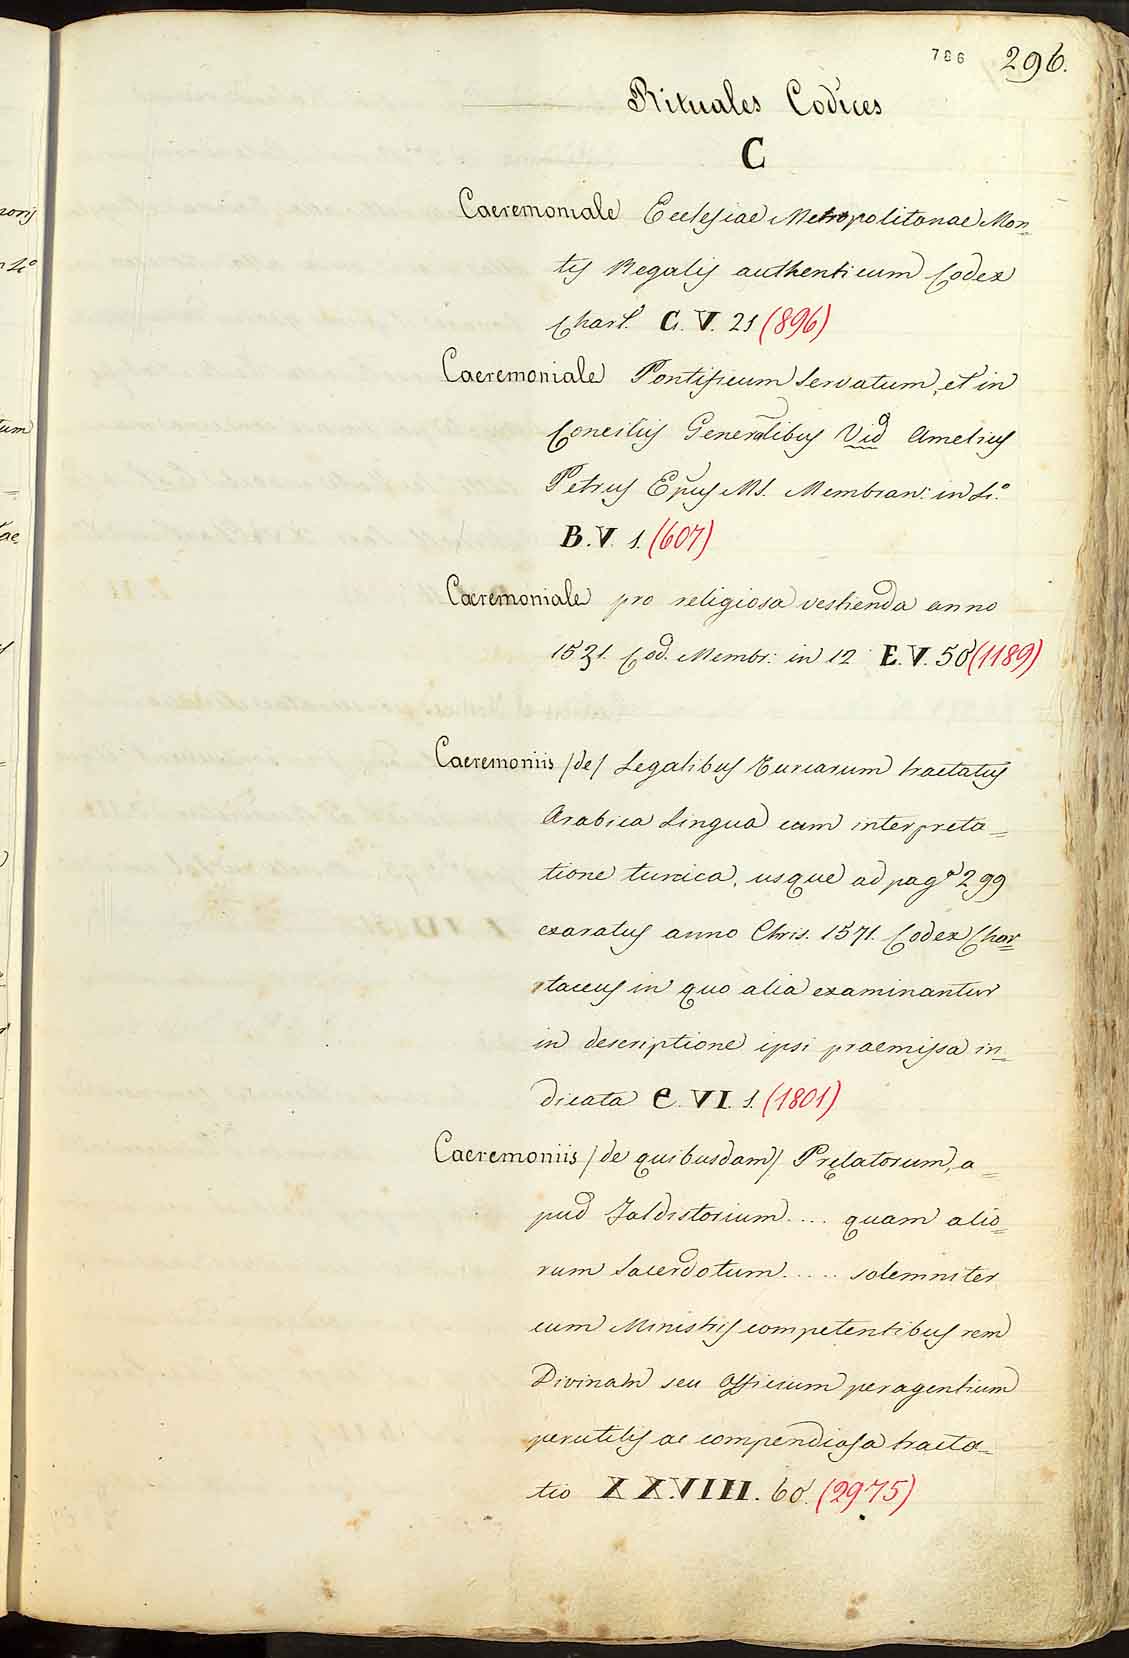 786 296.
Rituales Codices
C
Caeremoniale Ecclesiae Metropolitanae Mon=
tis Regalis authenticum Codex
Chart. C. V. 21 (896)
Caeremoniale Pontificum servatum, et in
Conciliis Generalibus Vid Amelius
Petrus Epus MS. Membran: in 4.º
B. V. 1. (607)
Caeremoniale pro religiosa vestienda anno
1531. Cod. Membr: in 12 E. V. 50 (1189)
Caeremoniis /de/ Legalibus Turcarum tractatus
Arabica Lingua cum interpreta=
tione turcica, usque ad pagª 299
exaratus anno Chris. 1571. Codex Char=
taceus in quo alia examinantur
in descriptione ipsi praemissa in=
dicata e. VI. 1. (1801)
Caeremoniis /de quibusdam/ Prelatorum, a=
pud Faldistorium .... quam alio=
rum Sacerdotum ..... solemniter
cum Ministris competentibus rem
Divinam seu Officium peragentium
perutilis ac compendiosa tracta=
tio XXVIII. 60. (2975)